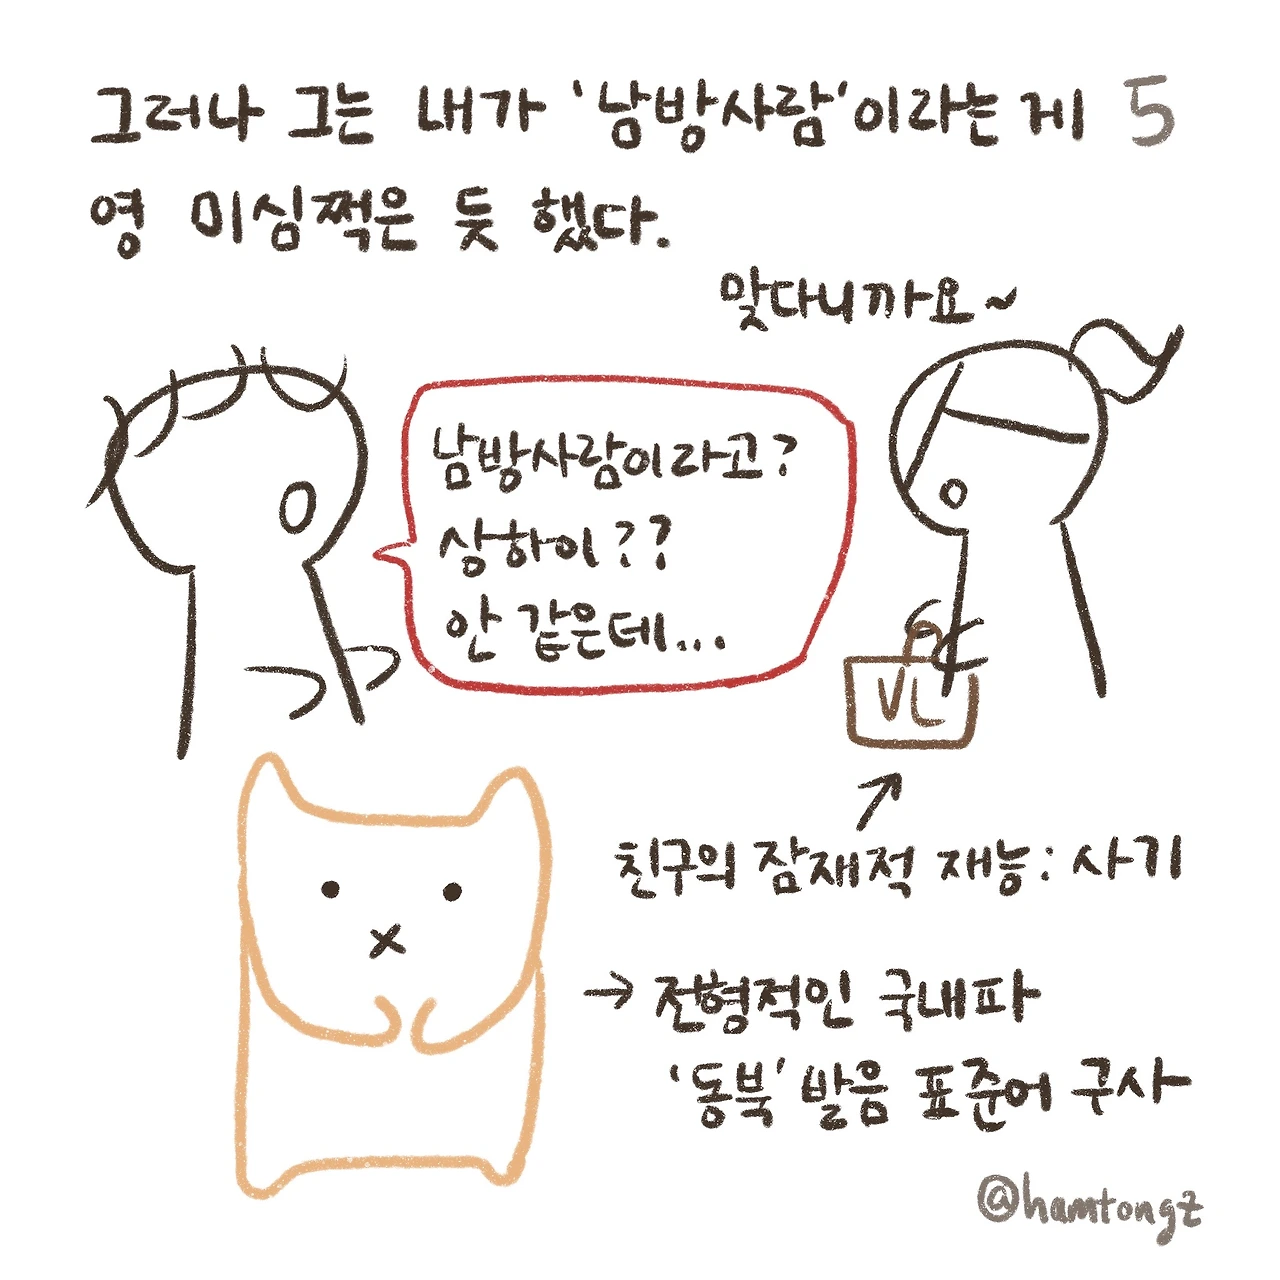 그러나 그는 내가 '남방사람'이라는게 5
영 미심쩍은 듯 했다.
맞다니까요~
남방사람이라고?
상하이??
안 같은데...
VL
친구의 잠재적 재능: 사기
→ 전형적인 국내파
'동북' 발음 표준어 구사
@hamtongz